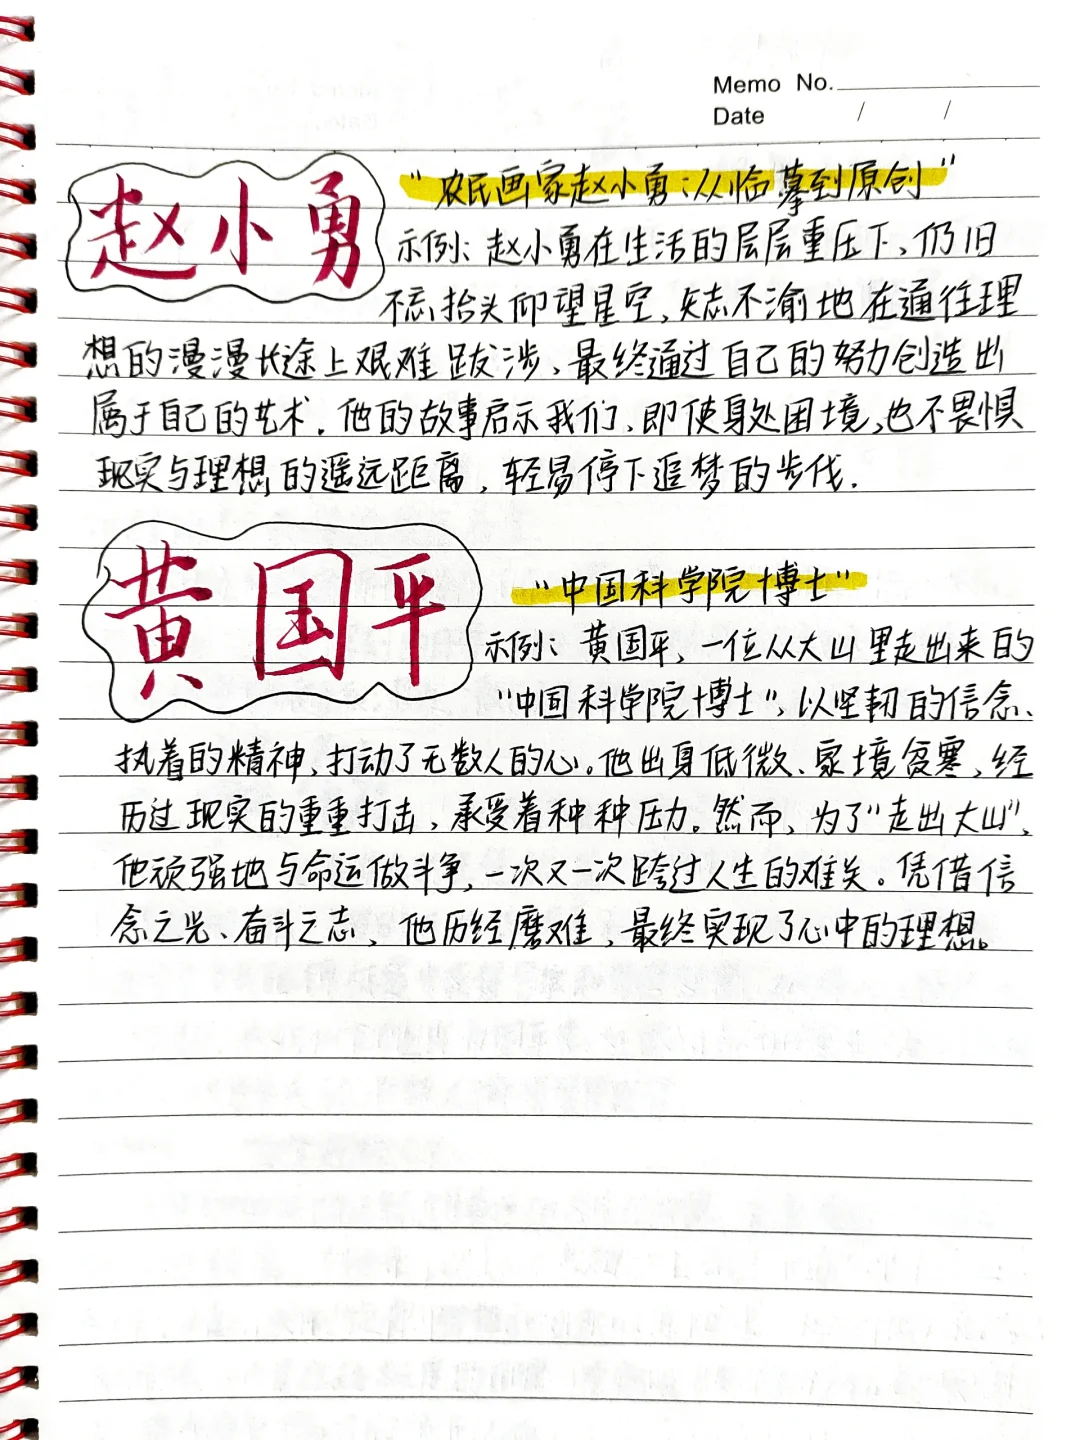 Memo No.
Date / /
赵小勇
"农民画家赵小勇:从临摹到原创"
示例:赵小勇在生活的层层重压下,仍旧
不忘抬头仰望星空,矢志不渝地在通往理
想的漫漫长途上艰难跋涉,最终通过自己的努力创造出
属于自己的艺术.他的故事启示我们,即使身处困境,也不畏惧
现实与理想的遥远距离,轻易停下追梦的步伐.
黄国平
"中国科学院博士"
示例:黄国平,一位从大山里走出来的
"中国科学院博士",以坚韧的信念、
执着的精神,打动了无数人的心。他出身低微、家境贫寒,经
历过现实的重重打击,承受着种种压力。然而,为了"走出大山",
他顽强地与命运做斗争,一次又一次跨过人生的难关。凭借信
念之光、奋斗之志,他历经磨难,最终实现了心中的理想。